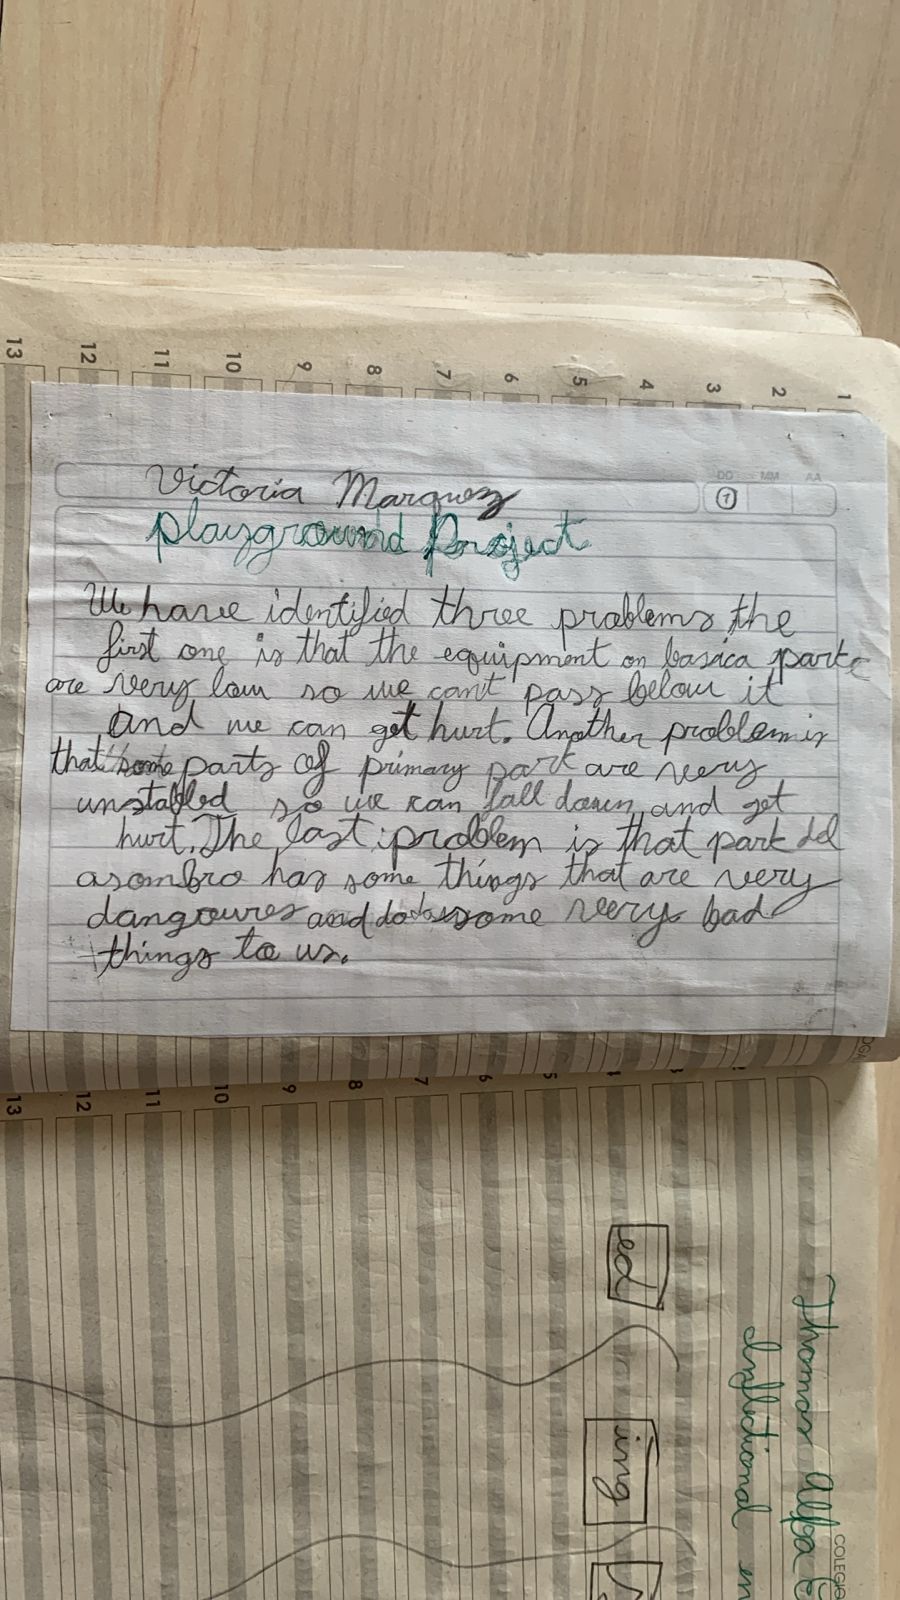 13 12 11 10 9 8 7 6 5 4 3 2 1
DD MM AA
Victoria Marquez
1
Playground Project
We have identified three problems, the
first one is that the equipment on basica park
are very low so we can't pass below it
and we can get hurt. Another problem is
that some parts of primary park are very
unstabled so we can fall down and get
hurt. The last problem is that park del
asombro has some things that are very
dangroures and do some very bad
things to us.
13 12 11 10 9 8 7 6 5
Thomas Alfa
Inflectional en
ed
ing
COLEGIO